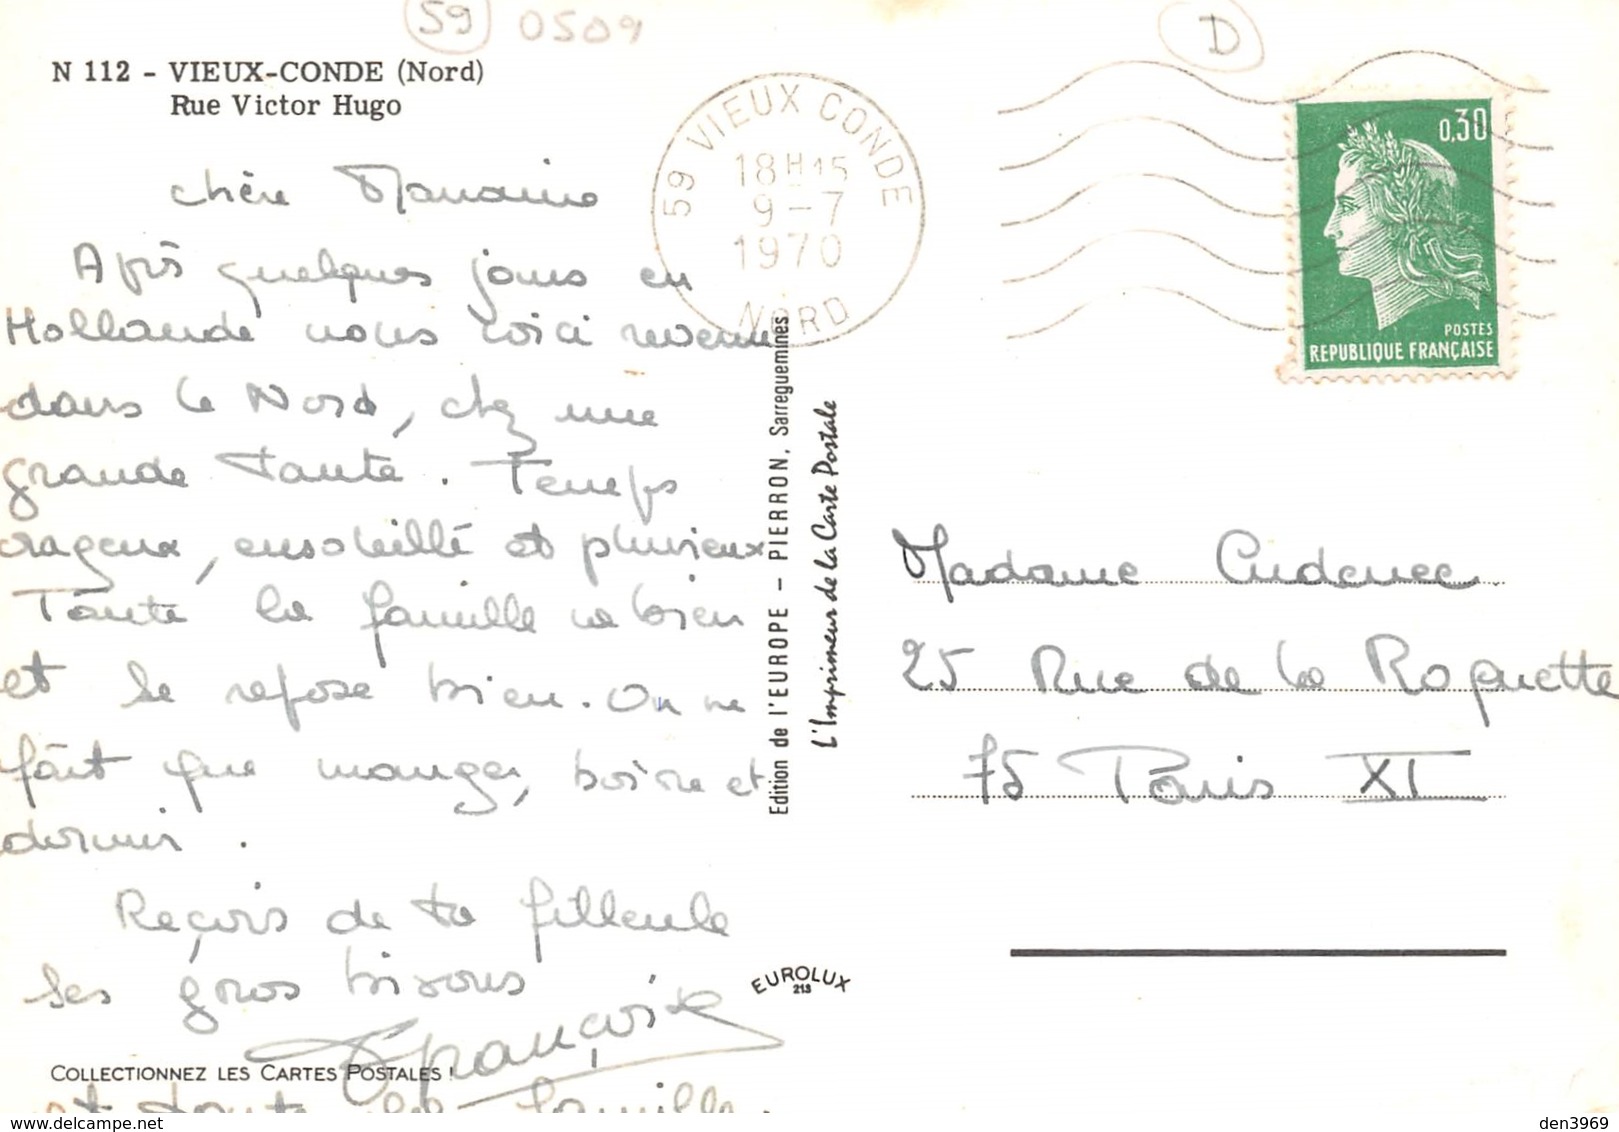 59 0509
D
N 112 - VIEUX-CONDE (Nord)
Rue Victor Hugo
59 VIEUX CONDE
18H15
9-7
1970
NORD
0,30
POSTES
REPUBLIQUE FRANÇAISE
chère Marraine
Après quelques jours en
Hollande nous voici revenus
dans le Nord, chez une
grande tante. Temps
orageux, ensoleillé et pluvieux
Toute la famille va bien
et se repose bien. On ne
fait que manger, boire et
dormir.
Reçois de ta filleule
ses gros bisous
Françoise
et toute la famille.
COLLECTIONNEZ LES CARTES POSTALES !
Edition de l'EUROPE - PIERRON, Sarreguemines
L'Imprimeur de la Carte Postale
EUROLUX
213
Madame Cudenec
25 Rue de la Roquette
75 Paris XI
den3969